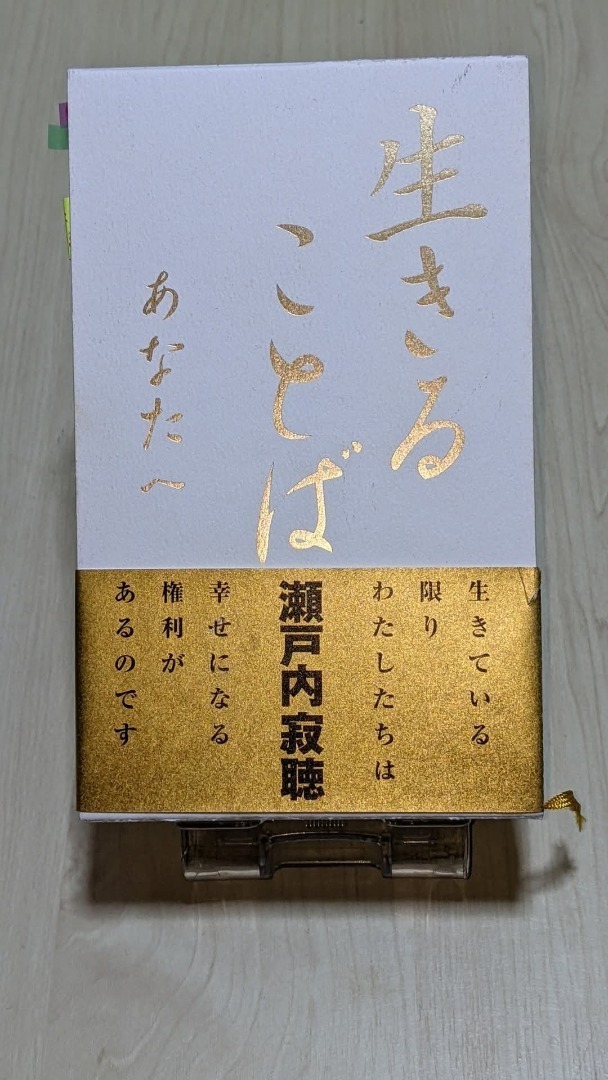 生きる
ことば
あなたへ
生きている
限り
わたしたちは
瀬戸内寂聴
幸せになる
権利が
あるのです